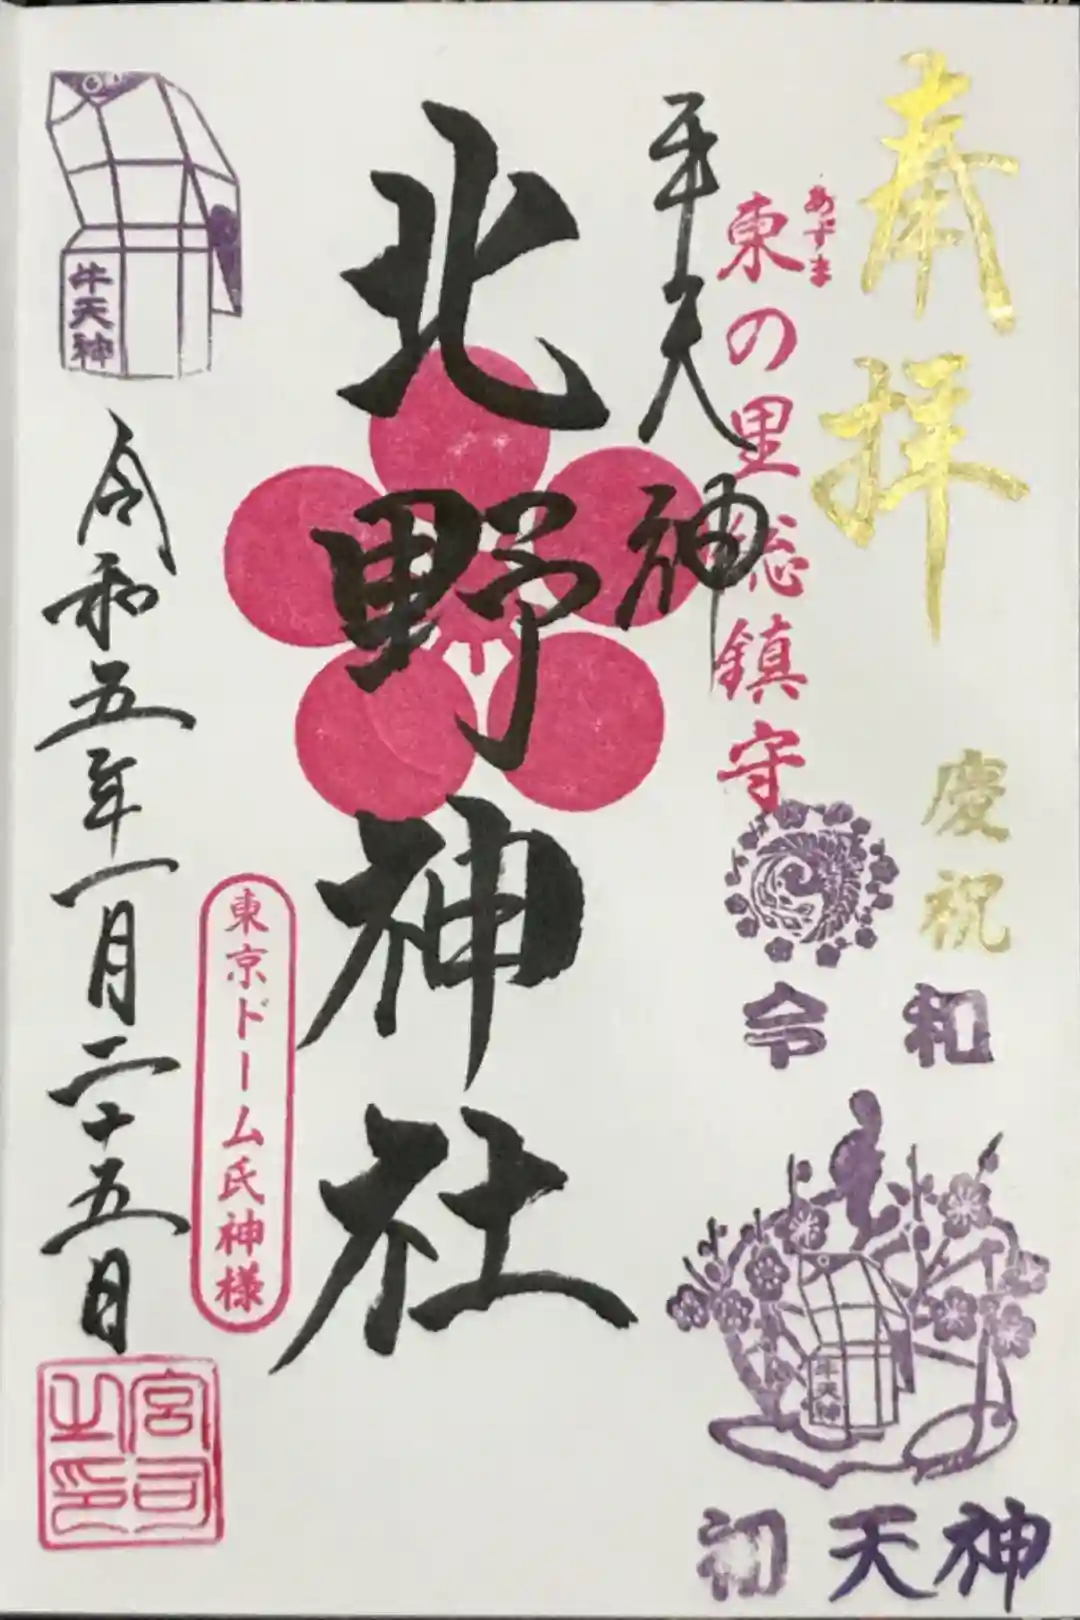 奉拝
慶祝
令和
牛天神
初天神
あずま
東の里総鎮守
牛天神
北野神社
東京ドーム氏神様
牛天神
令和五年一月二十五日
宮司
之印